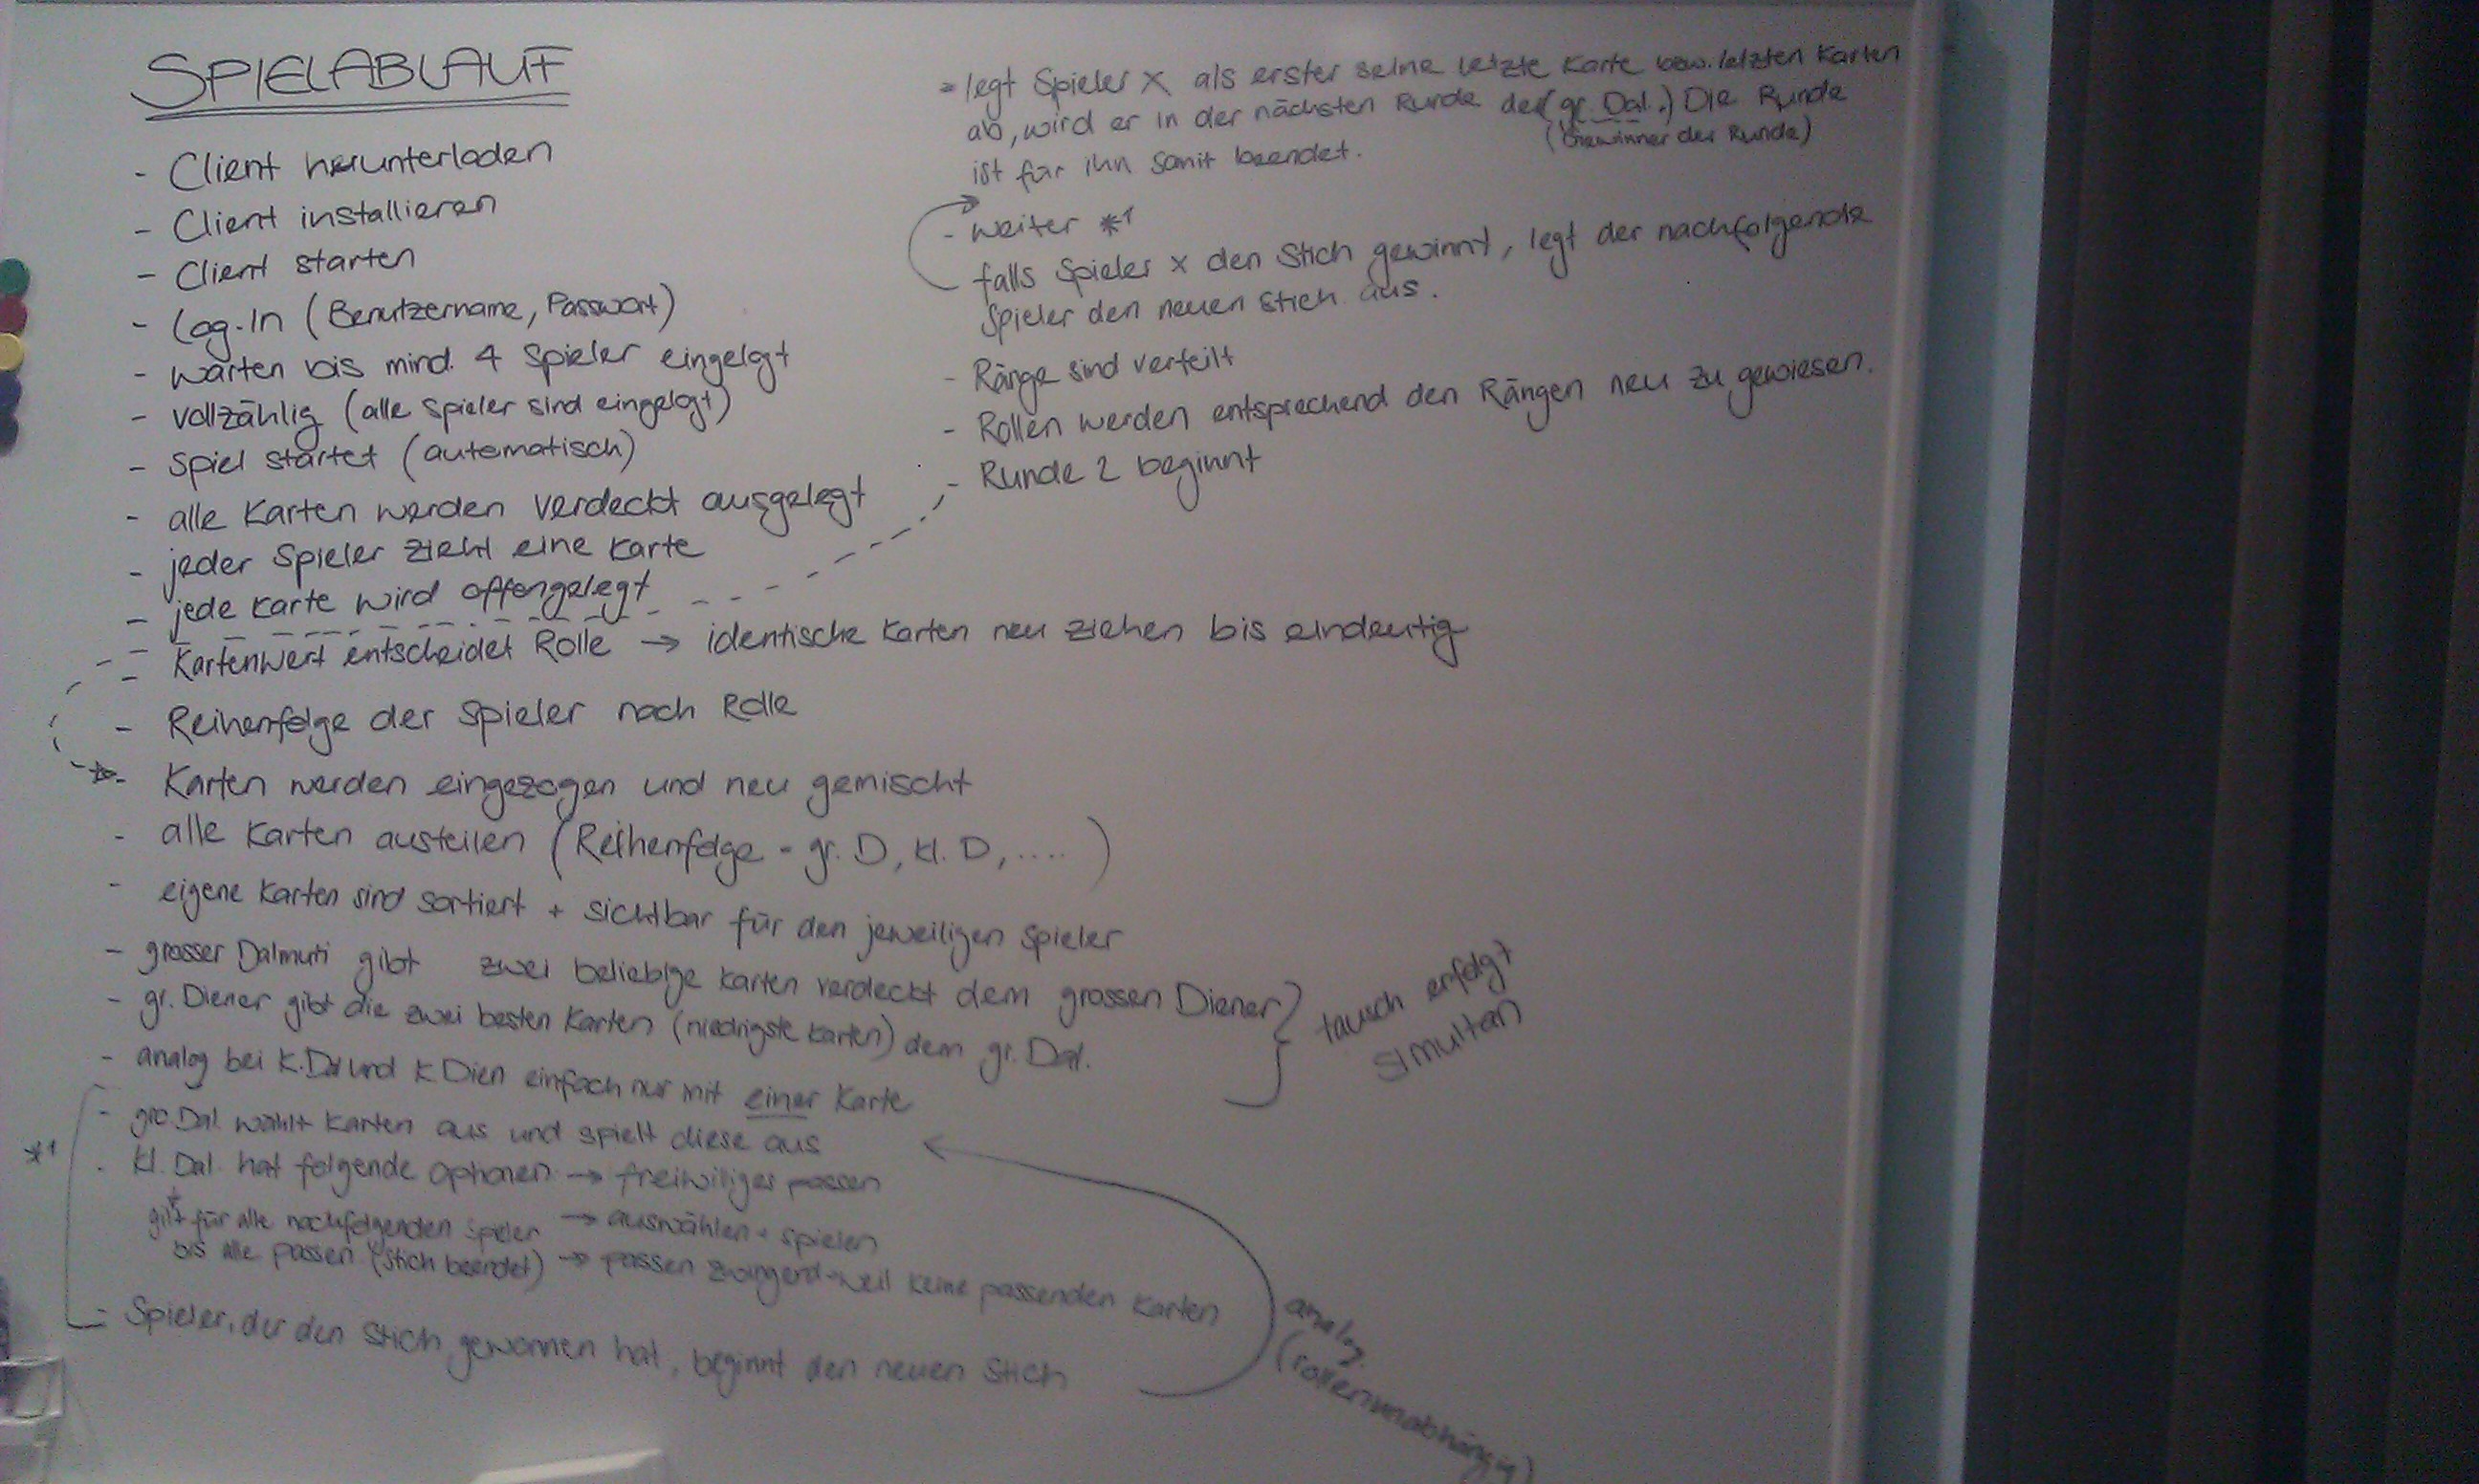 SPIELABLAUF
- Client herunterladen
- Client installieren
- Client starten
- Log-In (Benutzername, Passwort)
- warten bis mind. 4 Spieler eingelogt
- vollzählig (alle Spieler sind eingelogt)
- Spiel startet (automatisch)
- alle Karten werden verdeckt ausgelegt
- jeder Spieler zieht eine Karte
- jede Karte wird offengelegt
- Kartenwert entscheidet Rolle → identische Karten neu ziehen bis eindeutig
- Reihenfolge der Spieler nach Rolle
- Karten werden eingezogen und neu gemischt
- alle Karten austeilen (Reihenfolge - gr. D, kl. D, ....)
- eigene Karten sind sortiert + sichtbar für den jeweiligen Spieler
- grosser Dalmuti gibt zwei beliebige Karten verdeckt dem grossen Diener
- gr. Diener gibt die zwei besten Karten (niedrigste Karten) dem gr. Dal.
tausch erfolgt
simultan
- analog bei K.Dal und K Dien einfach nur mit einer Karte
*1
- gro.Dal. wählt Karten aus und spielt diese aus
- kl. Dal. hat folgende Optionen → freiwiliges passen
gilt für alle nachfolgenden Spieler → auswählen + spielen
bis alle passen (Stich beendet) → passen zwingend weil keine passenden Karten
- Spieler, der den Stich gewonnen hat, beginnt den neuen Stich
analog
(rollenunabhängig)
- legt Spieler X als erster seine letzte Karte bzw. letzten Karten
ab, wird er in der nächsten Runde der (gr. Dal.) Die Runde
(Gewinner der Runde)
ist für ihn somit beendet.
- weiter *1
falls Spieler X den Stich gewinnt, legt der nachfolgende
Spieler den neuen Stich aus.
- Ränge sind verteilt
- Rollen werden entsprechend den Rängen neu zu gewiesen.
- Runde 2 beginnt